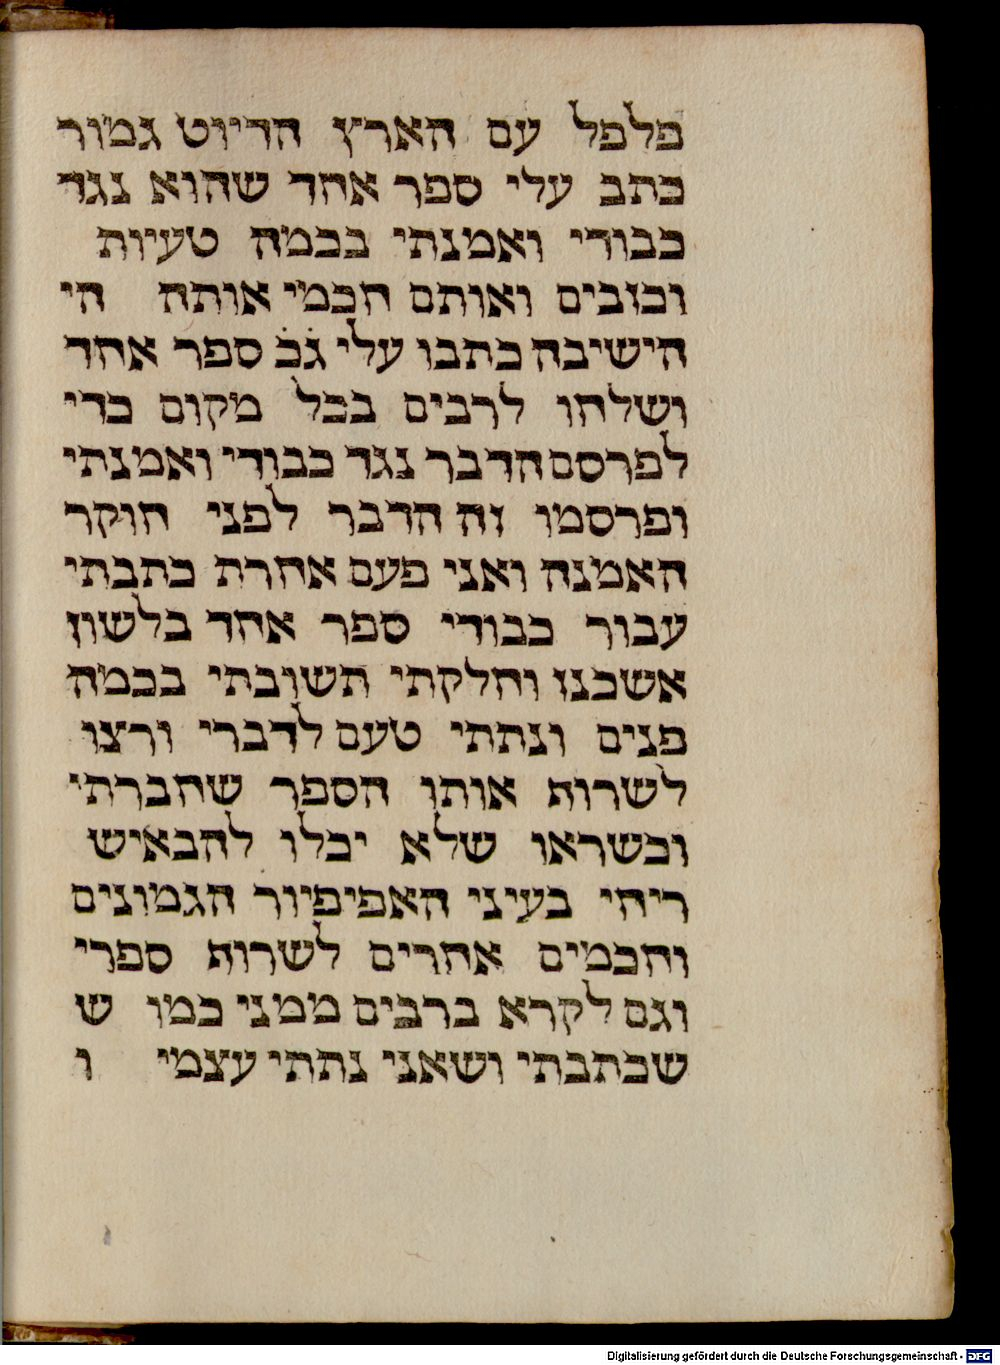 פלפל עם הארץ הדיוט גמור
כתב עלי ספר אחד שהוא נגד
כבודי ואמנתי בכמה טעיות
וכזבים ואותם חכמי אותה הי
הישיבה כתבו עלי ג֗כ֗ ספר אחד
ושלחו לרבים בכל מקום כדי
לפרסם הדבר נגד כבודי ואמנתי
ופרסמו זה הדבר לפני חוקר
האמנה ואני פעם אחרת כתבתי
עבור כבודי ספר אחד בלשון
אשכנז וחלקתי תשובתי בכמה
פנים ונתתי טעם לדברי ורצו
לשרות אותו הספר שחברתי
וכשראו שלא יכלו להבאיש
ריחי בעיני האפיפיור הגמונים
וחכמים אחרים לשרות ספרי
וגם לקרא ברבים ממני כמו ש
שכתבתי ושאני נתתי עצמי ו
Digitalisierung gefördert durch die Deutsche Forschungsgemeinschaft - DFG